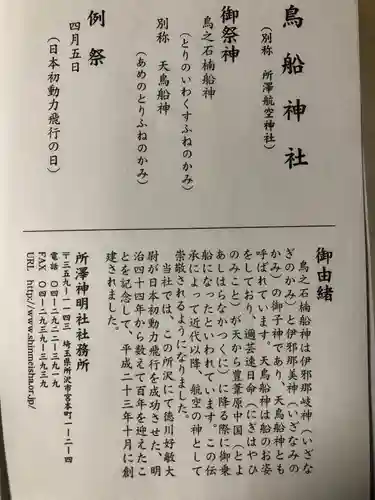 鳥船神社
（別称　所澤航空神社）
御祭神
鳥之石楠船神
（とりのいわくすふねのかみ）
別称　天鳥船神
（あめのとりふねのかみ）
例祭
四月五日
（日本初動力飛行の日）
御由緒
鳥之石楠船神は伊邪那岐神（いざな
ぎのかみ）と伊邪那美神（いざなみの
かみ）の御子神であり、天鳥船神とも
呼ばれています。天鳥船神は船のお姿
をしており、邇芸速日命（にぎはやひ
のみこと）が天から豊葦原中国（とよ
あしはらなかつくに）に降る際に御乗
船になったといわれています。この伝
承によって近代以降、航空の神として
崇敬されるようになりました。
当社では、ここ所沢にて徳川好敏大
尉が日本初動力飛行を成功させた、明
治四十四年から数えて百年を迎えたこ
とを記念して、平成二十三年十月に創
建されました。
所澤神明社社務所
〒三五九-一一四三　埼玉県所沢市宮本町一-二-四
電話　〇四-二九二二-三九一九
FAX　〇四-二九三九-三九三九
URL　http://www.shinmeisha.or.jp/